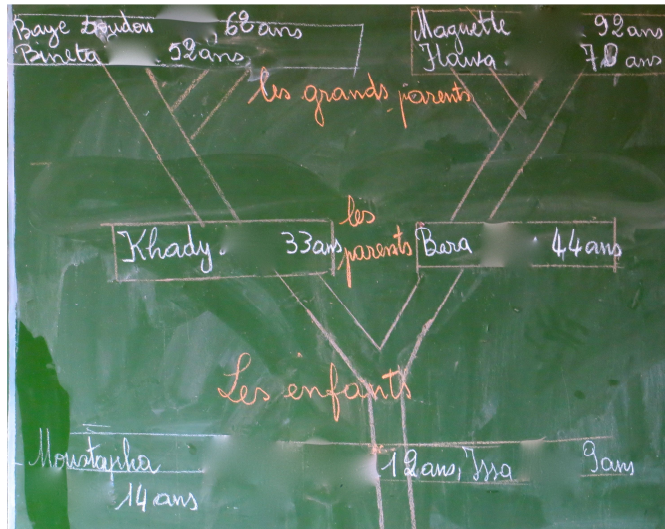 Baye Doudou , 62 ans
Bineta 52 ans,
Maguette . 92 ans
Hawa 70 ans
les grands parents
Khady. 33 ans
les
parents
Bara . 44 ans
Les enfants
Moustapha 12 ans, Issa 9 ans
14 ans